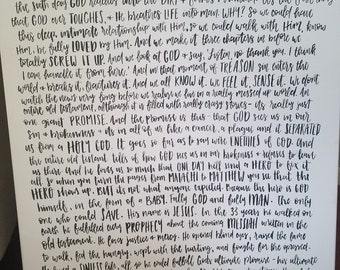 the sixth day GOD reaches into the DIRT
that GOD ever TOUCHES, & He BREATHES LIFE into man. WHY? So we could have
this deep, intimate relationship with Him, so we could walk with Him, know
Him, be fully LOVED by Him. And we make it three chapters in before we
totally SCREW IT UP. And we look at GOD & say, "Listen, no thank you. I think
I can handle it from here." And in that moment of TREASON sin enters the
world & breaks it, fractures it. And we all KNOW it. We FEEL it, SENSE it. We don't
watch the news very long before we realize we live in a really messed up world. An
entire old testament, although it is filled with really crazy stories - it's really just
one giant PROMISE. And the promise is this - that GOD sees us in our
sin & brokenness & it's in all of us like a cancer, a plague and it SEPARATED
us from a HOLY GOD. It goes so far as to say we're ENEMIES of GOD. And
the entire old testament tells of how GOD sees us in our brokenness & refuses to leave
us there. And He loves us so much that ONE DAY He'll send a HERO to fix it
all. So when you turn the pages from MALACHI to MATTHEW you see that the
HERO shows up. But it's not what anyone expected. Because this hero is GOD
himself, in the form of a BABY. Fully GOD and fully MAN. The only
one who could SAVE. His name is JESUS. In the 33 years he walked on
earth he fulfilled every PROPHECY about the coming MESSIAH written in the
old testament. He loved justice & mercy. He opened blind eyes, raised the lame
to walk, fed the hungry, wept with the hurting, and fought for the oppressed.
SINLESS life, all so he could fulfill God's ultimate promise - this ultimate